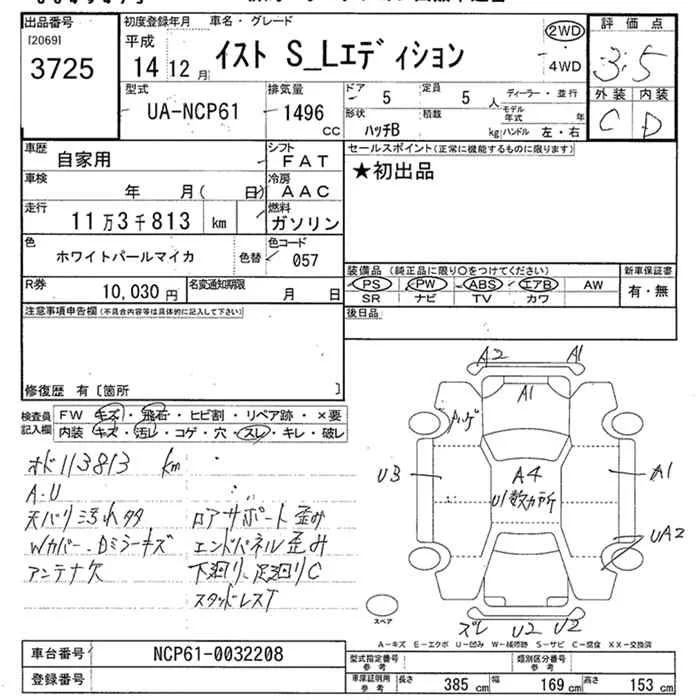 出品番号
[2069]
3725
初度登録年月 車名・グレード
平成
14 12 月
イスト S_Lエディション
2WD
・
4WD
評価点
3.5
外装 内装
C D
型式
UA-NCP61
排気量
1496
CC
ドア 5
定員 5 人
ディーラー・並行
形状
ハッチB
積載
kg
モデル年式 年
ハンドル 左・右
車歴
自家用
シフト
FAT
車検
年 月( 日)
冷房
AAC
走行
11万3千813 km
燃料
ガソリン
色
ホワイトパールマイカ
色替
色コード
057
R券
10,030 円
名変通知期限
月 日
セールスポイント(正常に機能するものに限ります)
★初出品
装備品 (純正品に限り○をつけてください)
PS PW ABS エアB AW
SR ナビ TV カワ
新車保証書
有・無
後日品
注意事項申告欄(不具合内容等は具体的に記入して下さい)
修復歴 有〔箇所 〕
検査員
記入欄
FW キズ・飛石・ヒビ割・リペア跡・×要
内装 キズ・汚レ・コゲ・穴・スレ・キレ・破レ
オド113813 km
A.U
天バリ汚れタタ
Wカバー、Dミラーキズ
アンテナ欠
ロアサポート歪み
エンドパネル歪み
下廻り、足廻りC
スタッドレスT
A2 A1
A1
Aハゲ
U3
A4
U1数カ所
A1
UA2
ズレ U2 U2
スペア
A-キズ E-エクボ U-凹み W-補修跡 S-サビ C-腐食 XX-交換済
車台番号
NCP61-0032208
登録番号
型式指定番号
参考
類別区分番号
参考
車庫証明用
参考
長さ 385 cm
幅 169 cm
高さ 153 cm